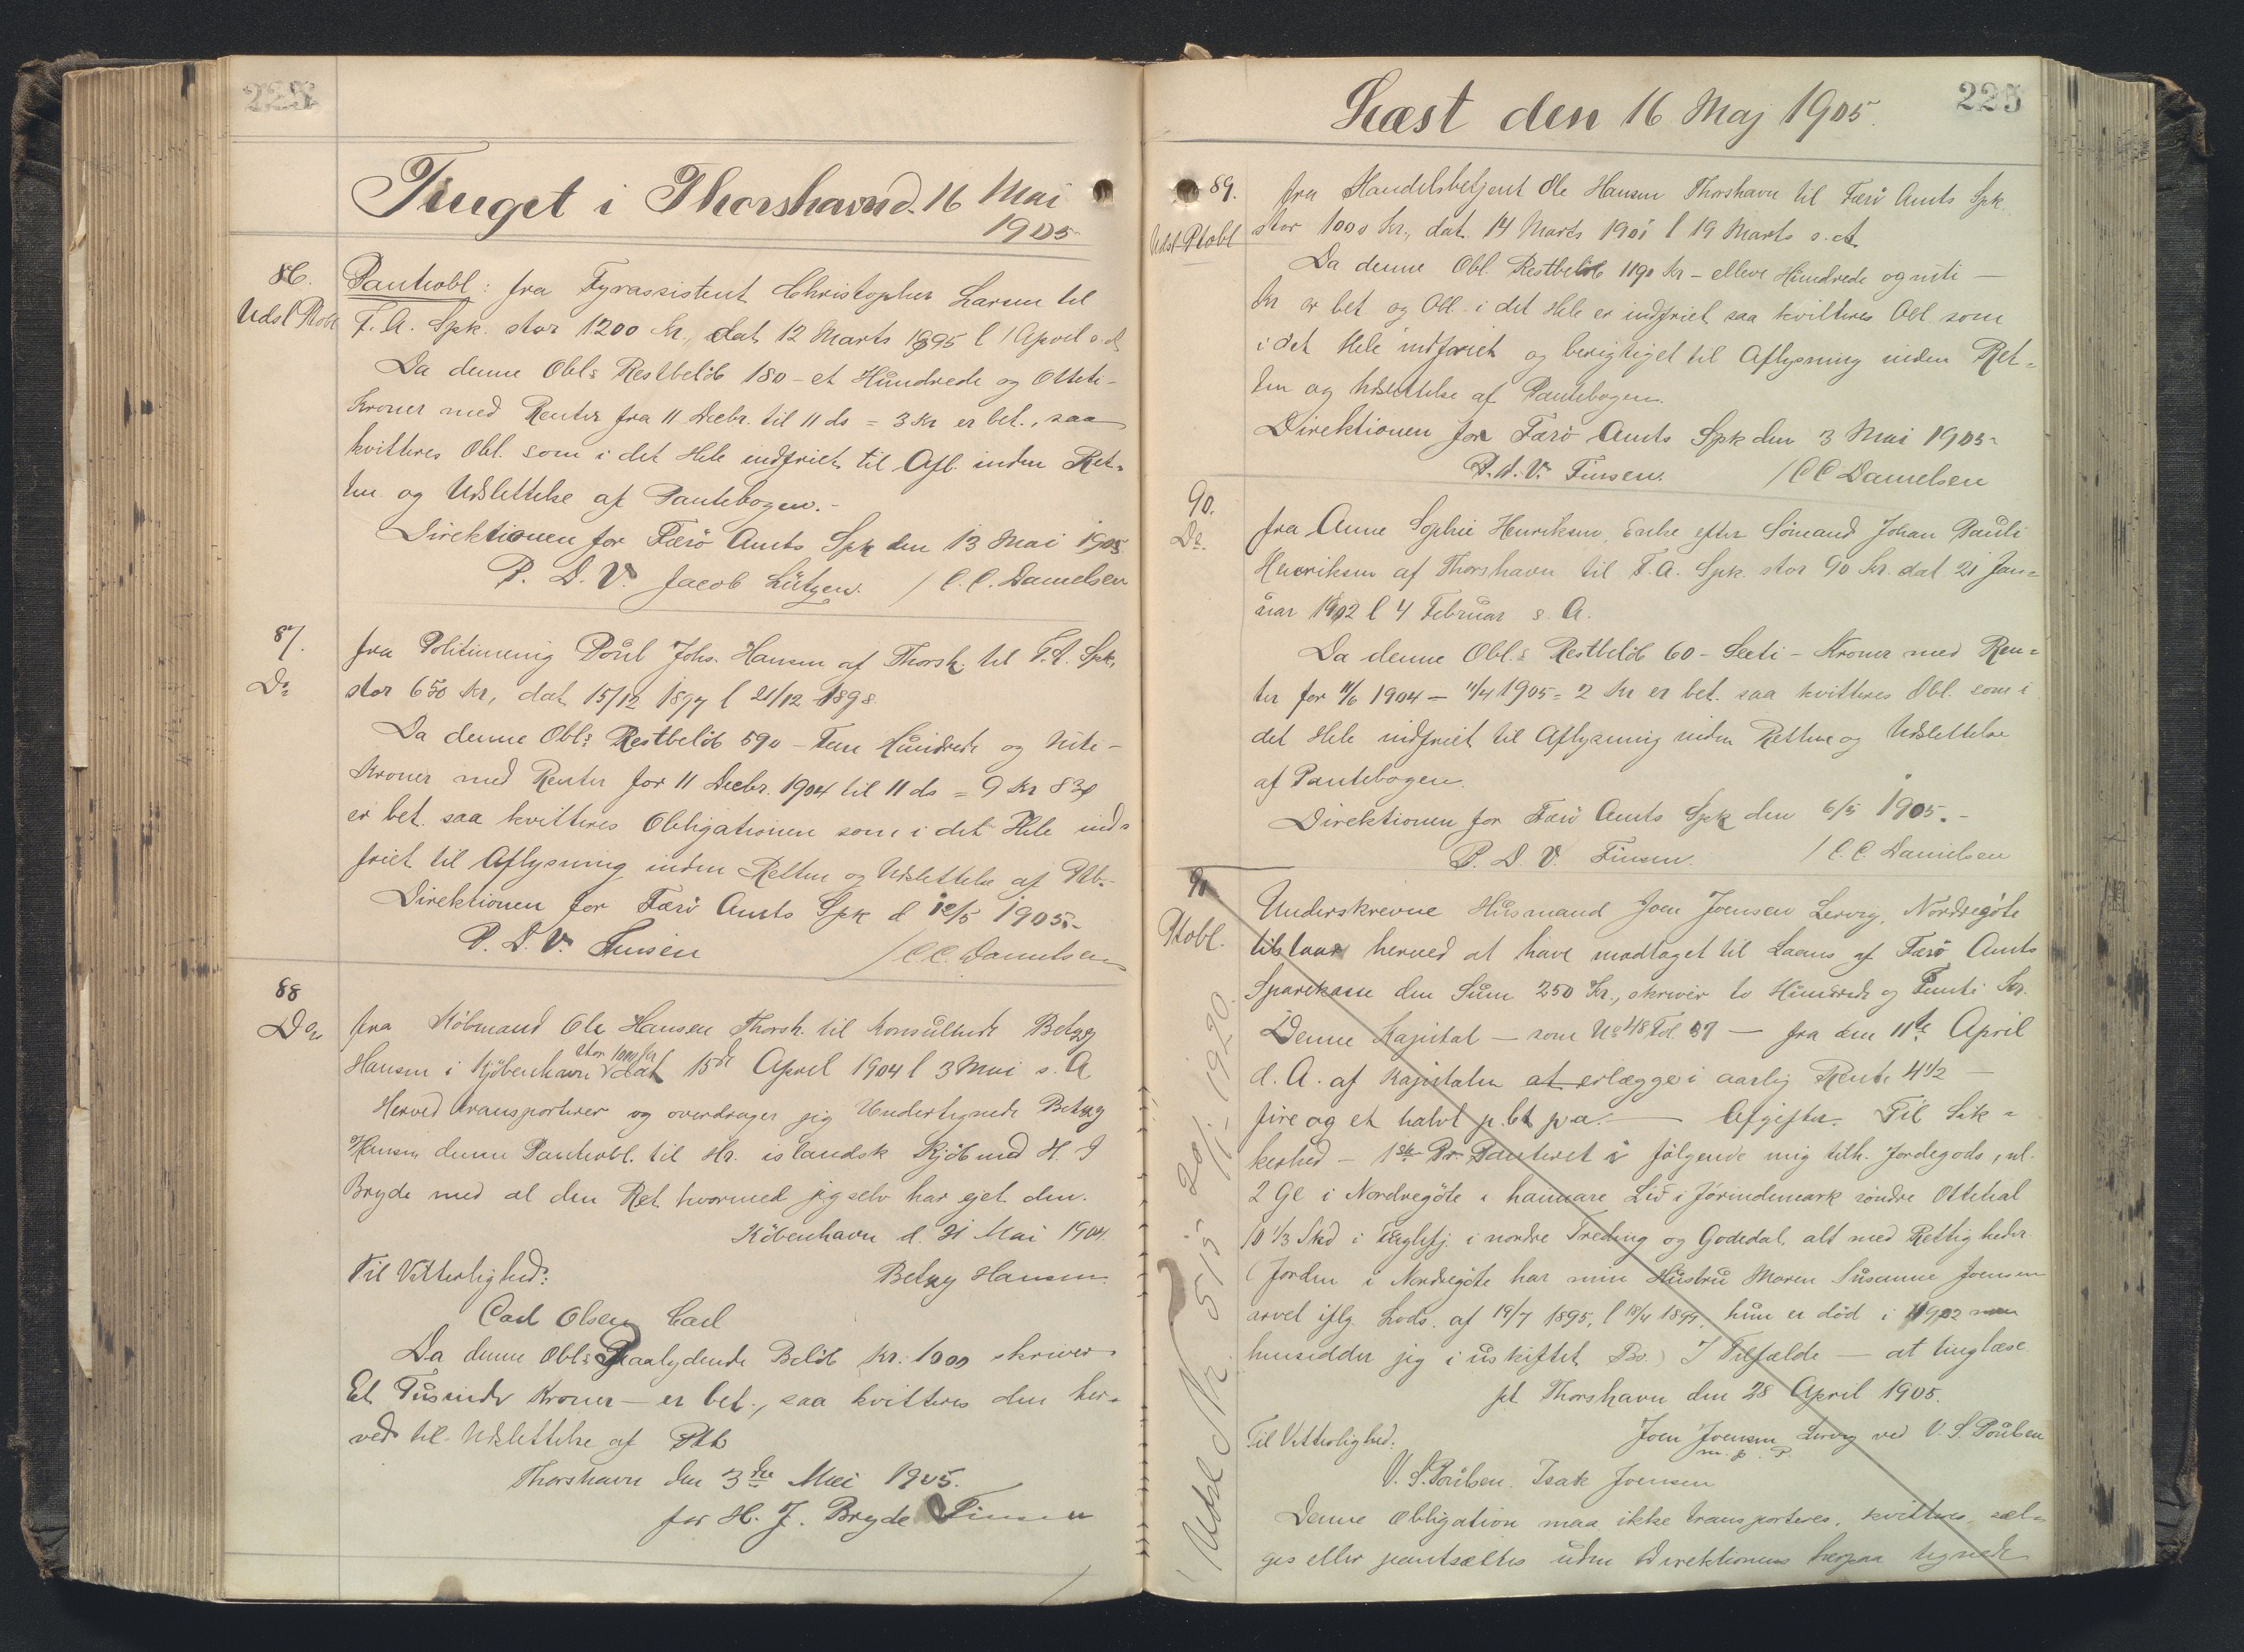 Tinget i Thorshavn d. 16 Mai
1905
86.
Udsl Ptobl
Pantrobl: fra Fyrassistent Christopher Larsen til
F. A. Spk. stor 1200 Kr., dat 12 Marts 1895 l 1 April s. A.
Da denne Obl.s Restbelöb 180 - et Hundrede og Otteti -
Kroner med Renter fra 11 Decbr. til 11 ds = 3 Kr er bet., saa
kvitteres Obl. som i det Hele indfriet til Afl. inden Ret-
ten og Udslettelse af Pantebogen.-
Direktionen for Færö Amts Spk den 13 Mai 1905
P. D. V. Jacob Lützen. / C. C. Danielsen
87.
Do
fra Politimenig Poul Johs. Hansen af Thorsh. til F. A. Spk.
stor 650 Kr., dat 15/12 1897 l 21/12 1898.
Da denne Obls Restbelöb 590 - Fem Hundrede og Niti -
Kroner med Renter for 11 Decbr. 1904 til 11 ds = 9 Kr 83
er bet. saa kvitteres Obligationen som i det Hele ind-
friet til Aflysning inden Retten og Udslettelse af Ptb.-
Direktionen for Færö Amts Spk d 10/5 1905.-
P. D. V. Finsen / C. C. Danielsen
88
Do
fra Köbmand Ole Hansen Thorsh. til Konsulinde Betzy
Hansen i Kjöbenhavn stor 1000 Kr dat 15de April 1904 l 3 Mai s. A
Herved transporterer og overdrager jeg Undertegnede Betzy
Hansen denne Pantrobl. til Hr. islandsk Kjöbmd H. J
Bryde med al den Ret hvormed jeg selv har ejet den.
Köbenhavn d. 31 Mai 1904.
Til Vitterlighed: Betzy Hansen.
Carl Olsen Carl
Da denne Obl.s Paalydende Belöb Kr. 1000 skriver
Et Tusinde Kroner - er bet., saa kvitteres den her-
ved til Udslettelse af Ptb
Thorshavn den 3die Mai 1905.
for H. J. Bryde Finsen
Læst den 16 Maj 1905.
225
89.
Udsl Ptobl
fra Handelsbetjent Ole Hansen Thorshavn til Færö Amts Spk
stor 1000 Kr., dat. 14 Marts 1901 l 19 Marts s. A.
Da denne Obl. Restbelöb 1190 Kr - elleve Hundrede og niti -
Kr er bet og Obl. i det Hele er indfriet saa kvitteres Obl som
i det Hele indfriet og berigtiget til Aflysning inden Ret-
ten og Udslettelse af Pantebogen.
Direktionen for Færö Amts Spk den 3 Mai 1905.-
P. D. V. Finsen. / C C Danielsen
90.
Do.
fra Anne Sophie Henriksen, Enke efter Sömand Johan Pauli
Henriksen af Thorshavn til F. A. Spk. stor 90 Kr. dat 21 Jan-
uar 1902 l 4 Februar s. A.
Da denne Obl.s Restbelöb 60 - Seeti - Kroner med Ren-
ter for 11/6 1904 - 11/4 1905 = 2 Kr er bet. saa kvitteres Obl. som i
det Hele indfriet til Aflysning inden Retten og Udslettelse
af Pantebogen.
Direktionen for Færö Amts Spk den 6/5 1905.-
P. D. V. Finsen. / C. C. Danielsen
91
Ptobl.
Underskrevne Husmand Joen Joensen Lervig, Nordregöte
tilstaar herved at have modtaget til Laans af Færö Amts
Sparekasse den Sum 250 Kr., skriver to Hundrede og Femti Kr.
Denne Kapital - som No 48 Fol 37 - fra den 11te April
d. A. af Kapitalen at erlægge i aarlig Rente 4 1/2 -
fire og et halvt p. Ct p a. - Afgifter. Til Sik-
kerhed - 1ste Pr. Panteret i fölgende mig tilh. Jordegods, nl.
2 Gl i Nordregöte i hannare Lid i Jörindemark söndre Ottetal
10 1/3 Skd i Fuglefj. i nordre Treding og Godedal, alt med Rettigheder.
(Jorden i Nordregöte har min Hustru Maren Susanne Joensen
arvet iflg Lods. af 19/7 1895, l 18/4 1899, hun er död i 1902 men
hensidder jeg i uskiftet Bo.) I Tilfælde - at tinglæse
pt Thorshavn den 28 April 1905.
Joen Joensen Lervig ved V. S. Poulsen
m. p. P.
Til Vitterlighed:
V. S. Poulsen. Isak Joensen
Denne Obligation maa ikke transporteres, kvitteres, sæl-
ges eller pantsættes uden Direktionens herpaa tegnede
Udsl Nr. 515 20/11-1920.